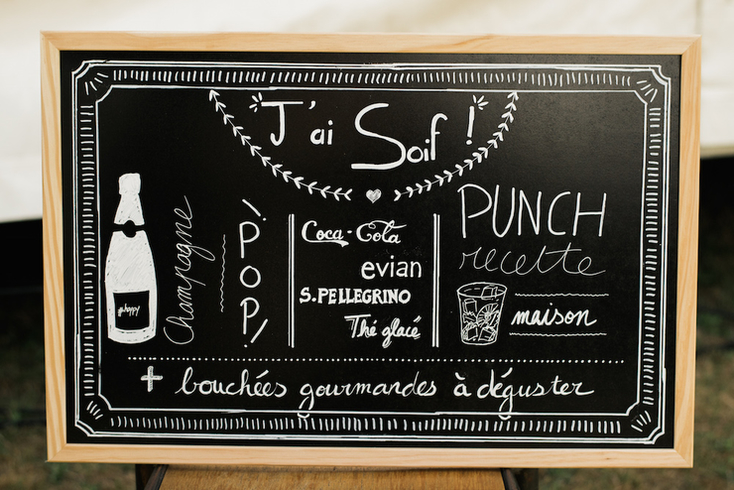 J'ai Soif !
Champagne
POP!
Coca-Cola
evian
S.PELLEGRINO
Thé glacé
PUNCH
recette
maison
+ bouchées gourmandes à déguster